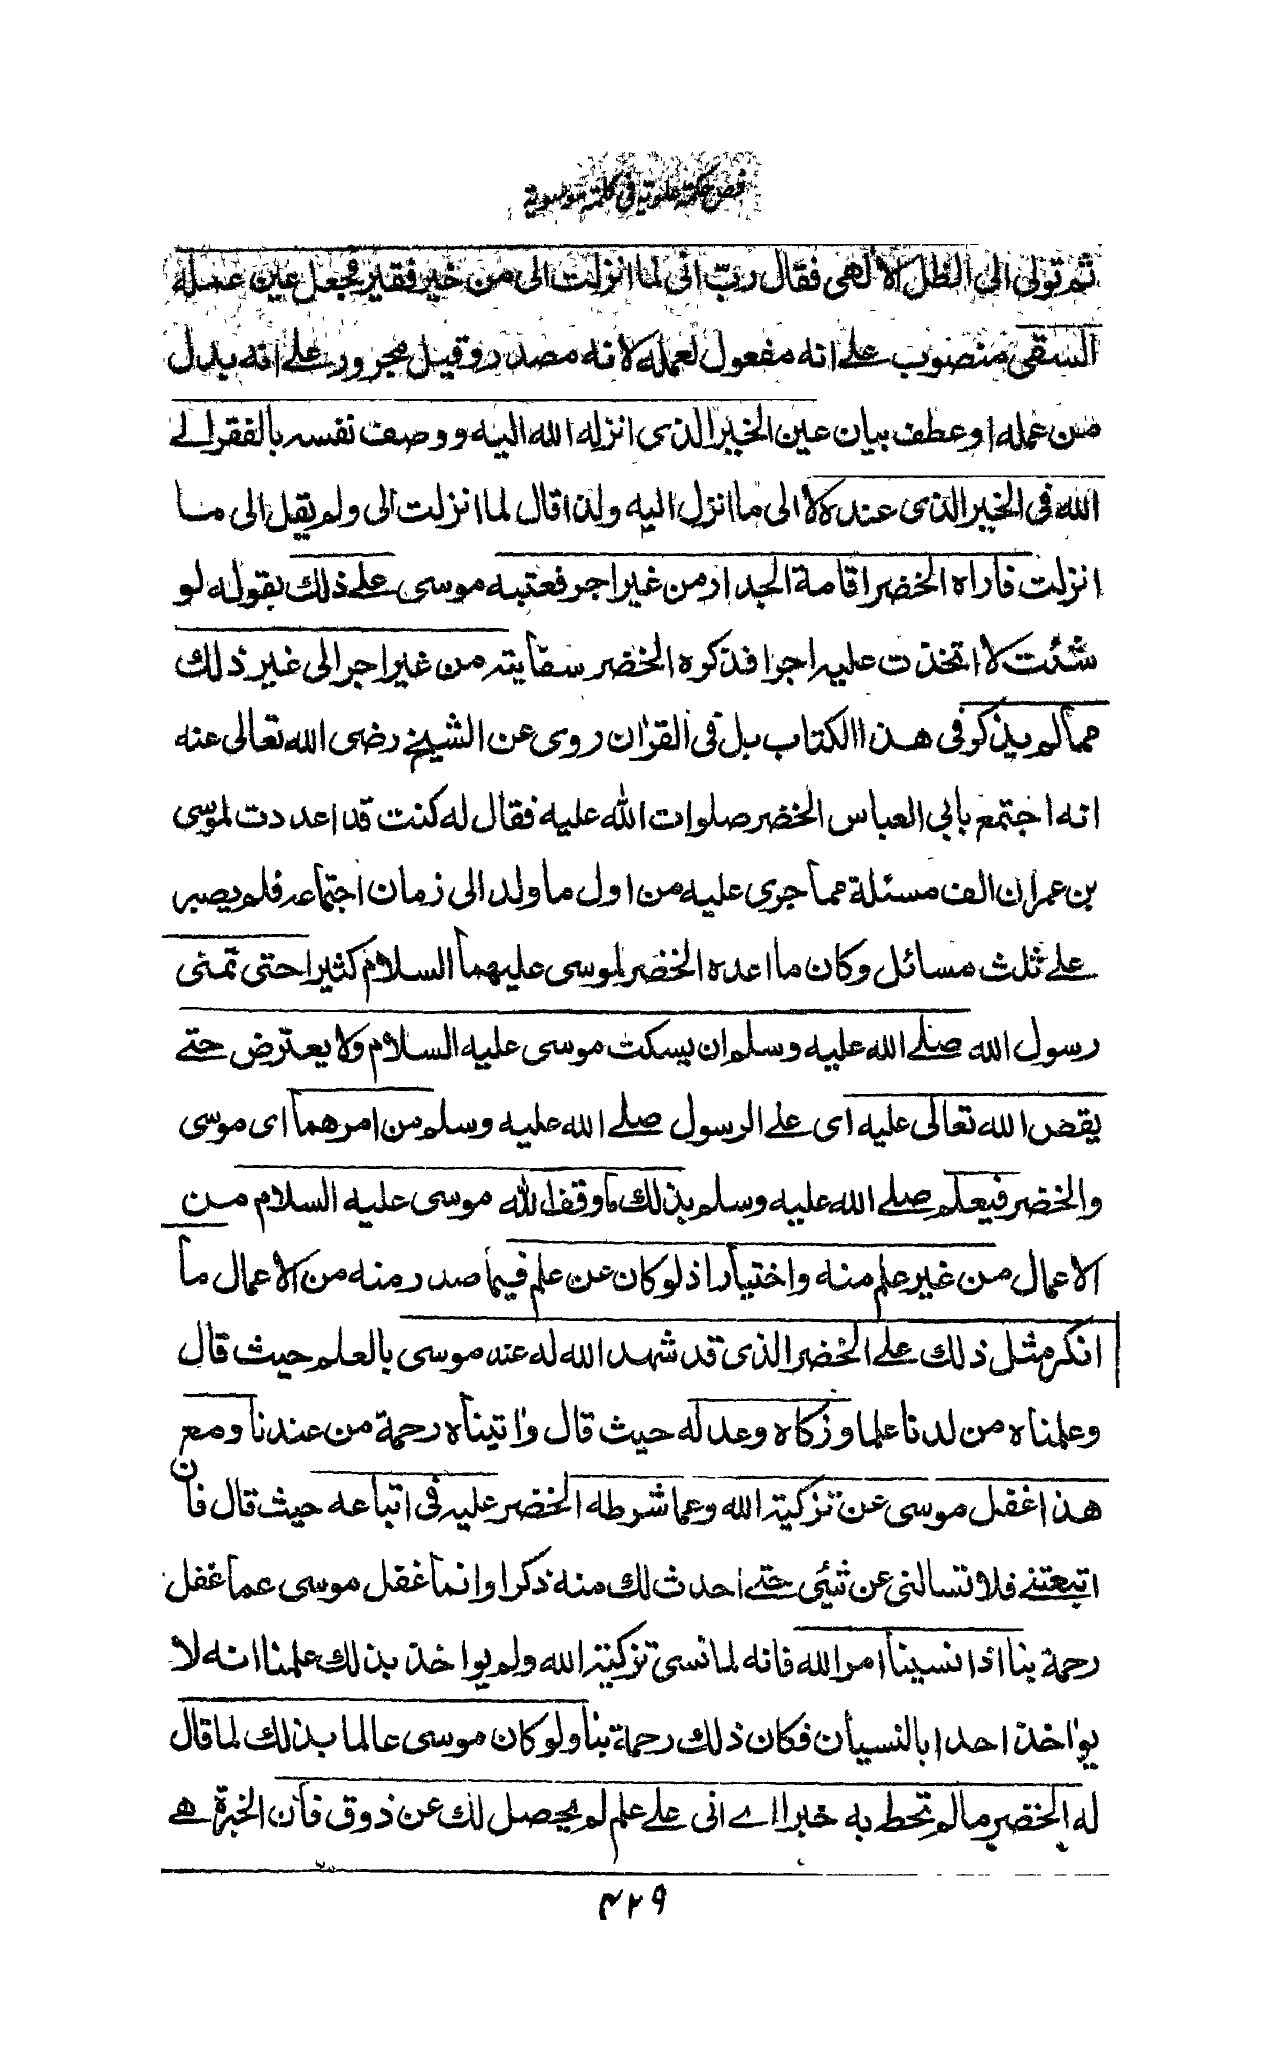 فص حكمة علوية فى كلمة موسوية
ثم تولى الى الظل الالهى فقال رب انى لما انزلت الى من خير فقير فجعل عين عمله
السقى منصوب على انه مفعول لعمله لانه مصدر وقيل مجرور على انه بدل
من عمله او عطف بيان عين الخير الذى انزله الله اليه ووصف نفسه بالفقر الے
الله فى الخير الذى عنده لا الى ما انزل اليه ولذا قال لما انزلت الى ولم يقل الى ما
انزلت فاراه الخضر اقامة الجدار من غير اجر فعتبه موسى على ذلك بقوله لو
شئت لا اتخذت عليه اجرا فذكره الخضر سقايته من غير اجر الى غير ذلك
مما لم يذكر فى هذا الكتاب بل فى القرآن روى عن الشيخ رضى الله تعالى عنه
انه اجتمع بابى العباس الخضر صلوات الله عليه فقال له كنت قد اعددت لموسى
بن عمران الف مسئلة مما جرى عليه من اول ما ولد الى زمان اجتماعه فلم يصبر
على ثلث مسائل وكان ما اعده الخضر لموسى عليهما السلام كثيرا حتى تمنى
رسول الله صلے الله عليه وسلم ان يسكت موسى عليه السلام ولا يعترض حتے
يقص الله تعالى عليه اى على الرسول صلے الله عليه وسلم من امرهما اى موسى
والخضر فيعلم صلے الله عليه وسلم بذلك ما وقف الله موسى عليه السلام من
الاعمال من غير علم منه واختيارا اذ لو كان عن علم فيما صدر منه من الاعمال ما
انكر مثل ذلك على الخضر الذى قد شهد الله له عند موسى بالعلم حيث قال
وعلمناه من لدنا علما وزكاه وعدله حيث قال واتيناه رحمة من عندنا ومع
هذا غفل موسى عن تزكية الله وعما شرطه الخضر عليه فى اتباعه حيث قال فان
اتبعتنے فلا تسالنى عن شئى حتے احدث لك منه ذكرا وانما غفل موسى عما غفل
رحمة بنا اذا نسينا امر الله فانه لما نسى تزكية الله ولم يواخذ بذلك علمنا انه لا
يواخذ احدا بالنسيان فكان ذلك رحمة بنا ولو كان موسى عالما بذلك لما قال
له الخضر ما لم تحط به خبرا اے انى على علم لم يحصل لك عن ذوق فان الخبرة هے
۴۲۹